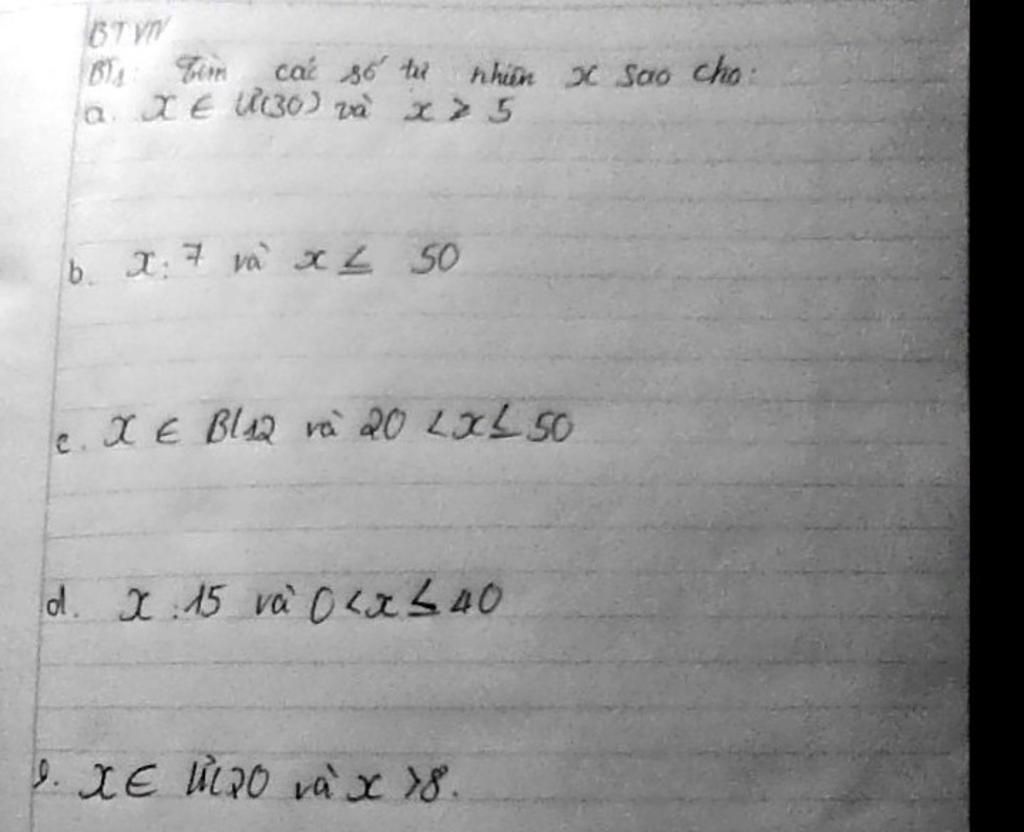 BTVN
BT1: Tìm các số tự nhiên x sao cho:
a. x ∈ Ư(30) và x > 5
b. x ⋮ 7 và x ≤ 50
c. x ∈ B(12 và 20 < x ≤ 50
d. x ⋮ 15 và 0 < x ≤ 40
e. x ∈ Ư(20 và x > 8.